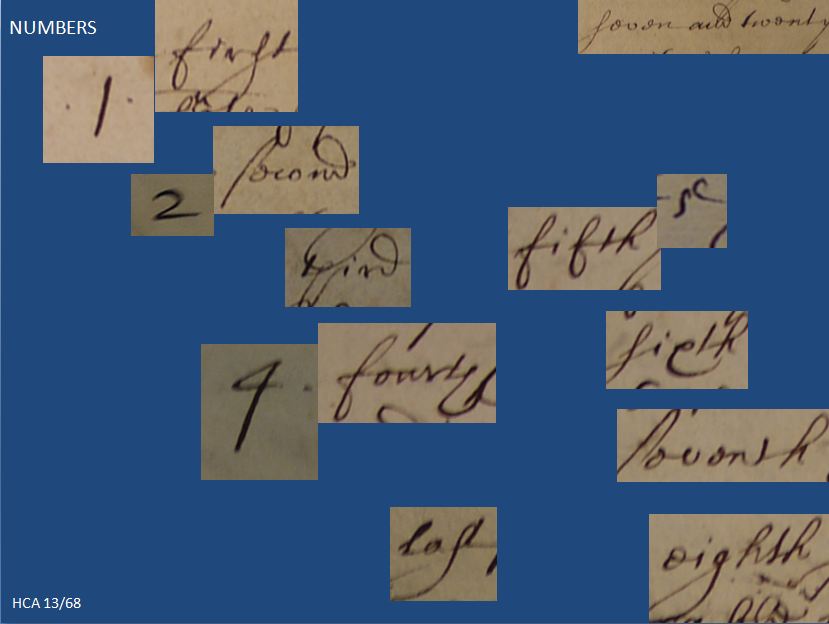 NUMBERS
first
seven and twenty
· 1 ·
second
2
5e
fifth
third
sixth
4
fourth
seventh
last
eighth
HCA 13/68